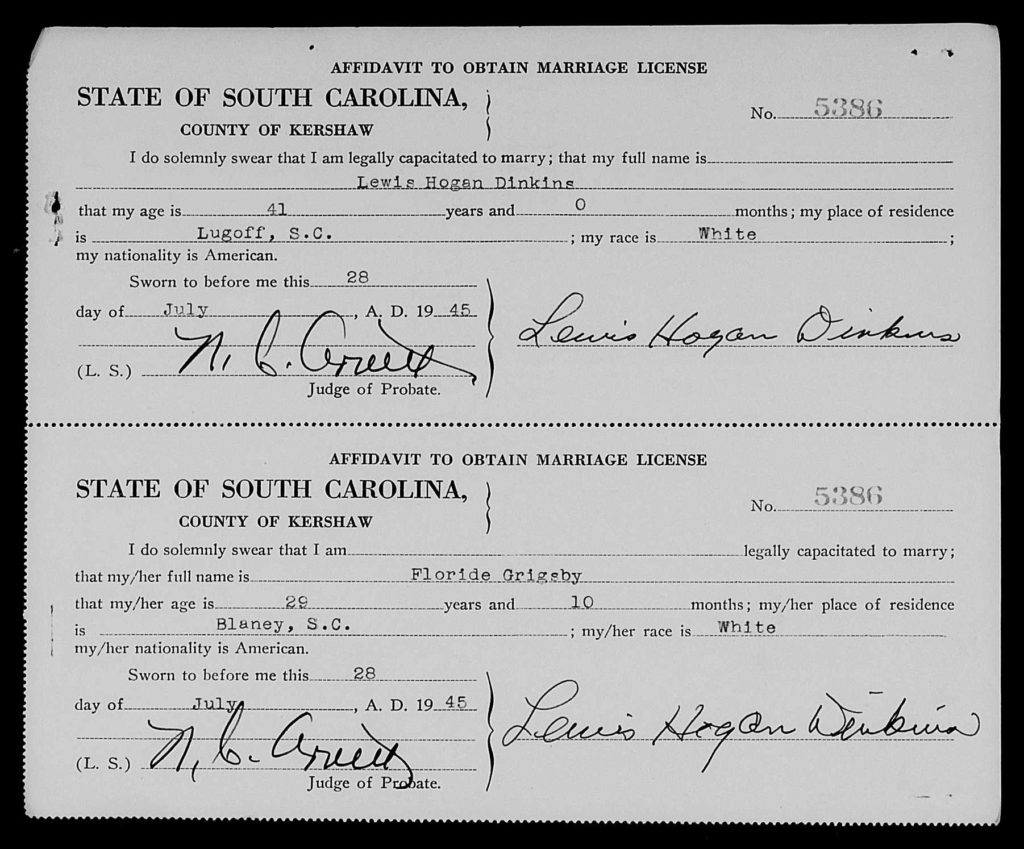 AFFIDAVIT TO OBTAIN MARRIAGE LICENSE
STATE OF SOUTH CAROLINA,
No. 5386
COUNTY OF KERSHAW
I do solemnly swear that I am legally capacitated to marry; that my full name is
Lewis Hogan Dinkins
that my age is 41 years and 0 months; my place of residence
is Lugoff, S.C. ; my race is White ;
my nationality is American.
Sworn to before me this 28
day of July, A. D. 19 45
Lewis Hogan Dinkins
(L. S.) N. C. Arnett
Judge of Probate.
AFFIDAVIT TO OBTAIN MARRIAGE LICENSE
STATE OF SOUTH CAROLINA,
No. 5386
COUNTY OF KERSHAW
I do solemnly swear that I am legally capacitated to marry;
that my/her full name is Floride Grigsby
that my/her age is 29 years and 10 months; my/her place of residence
is Blaney, S.C. ; my/her race is White
my/her nationality is American.
Sworn to before me this 28
day of July, A. D. 19 45
Lewis Hogan Dinkins
(L. S.) N. C. Arnett
Judge of Probate.